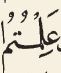 عَلِمْتُمُ